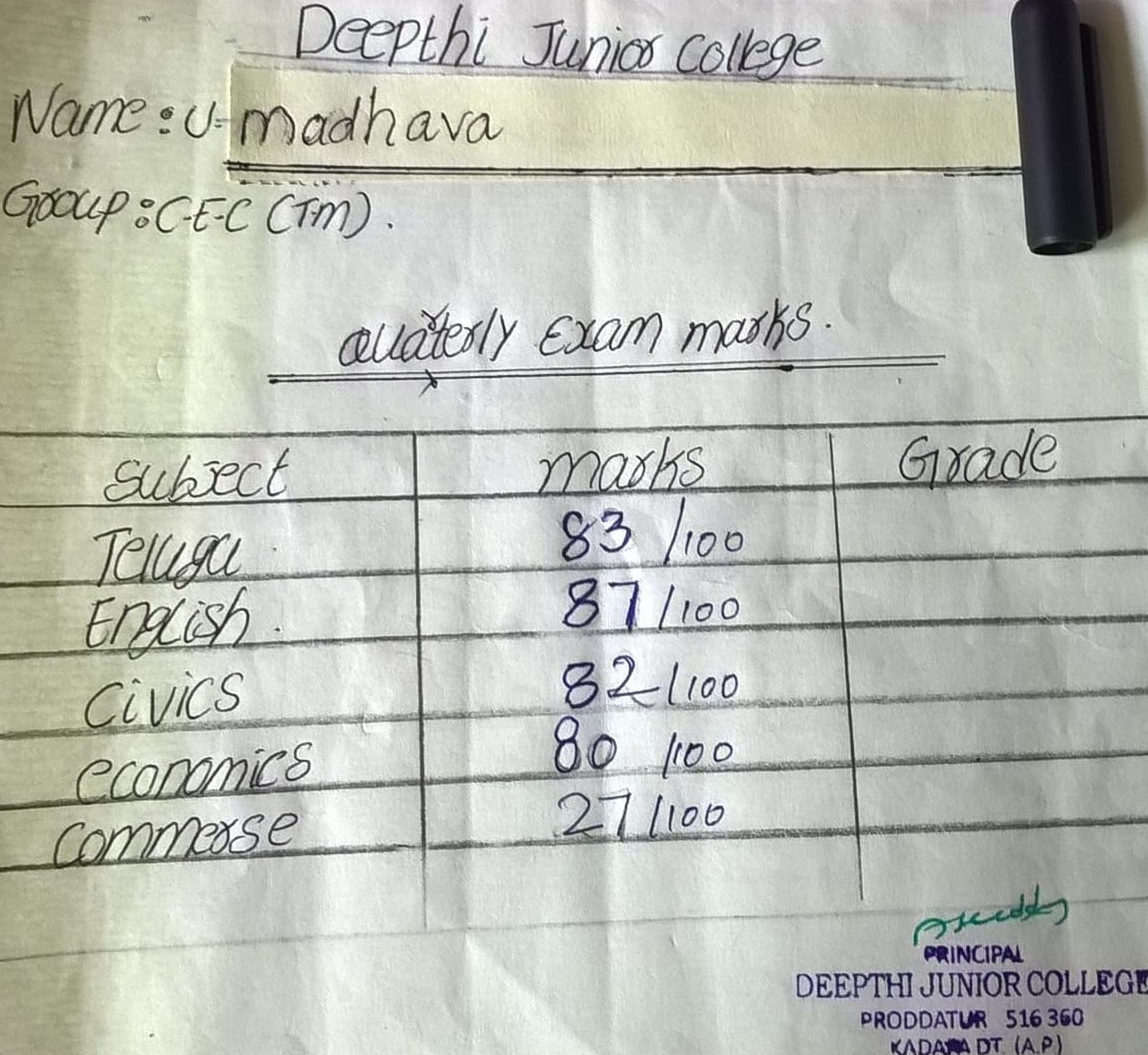 Deepthi Junior College
Name : U. madhava
Group : C.E.C (T.M).
Quaterly Exam marks.
Subject marks Grade
Telugu 83 /100
English. 87/100
Civics 82/100
economics 80 /100
commerse 27/100
PRINCIPAL
DEEPTHI JUNIOR COLLEGE
PRODDATUR 516 360
KADAPA DT. (A.P.)